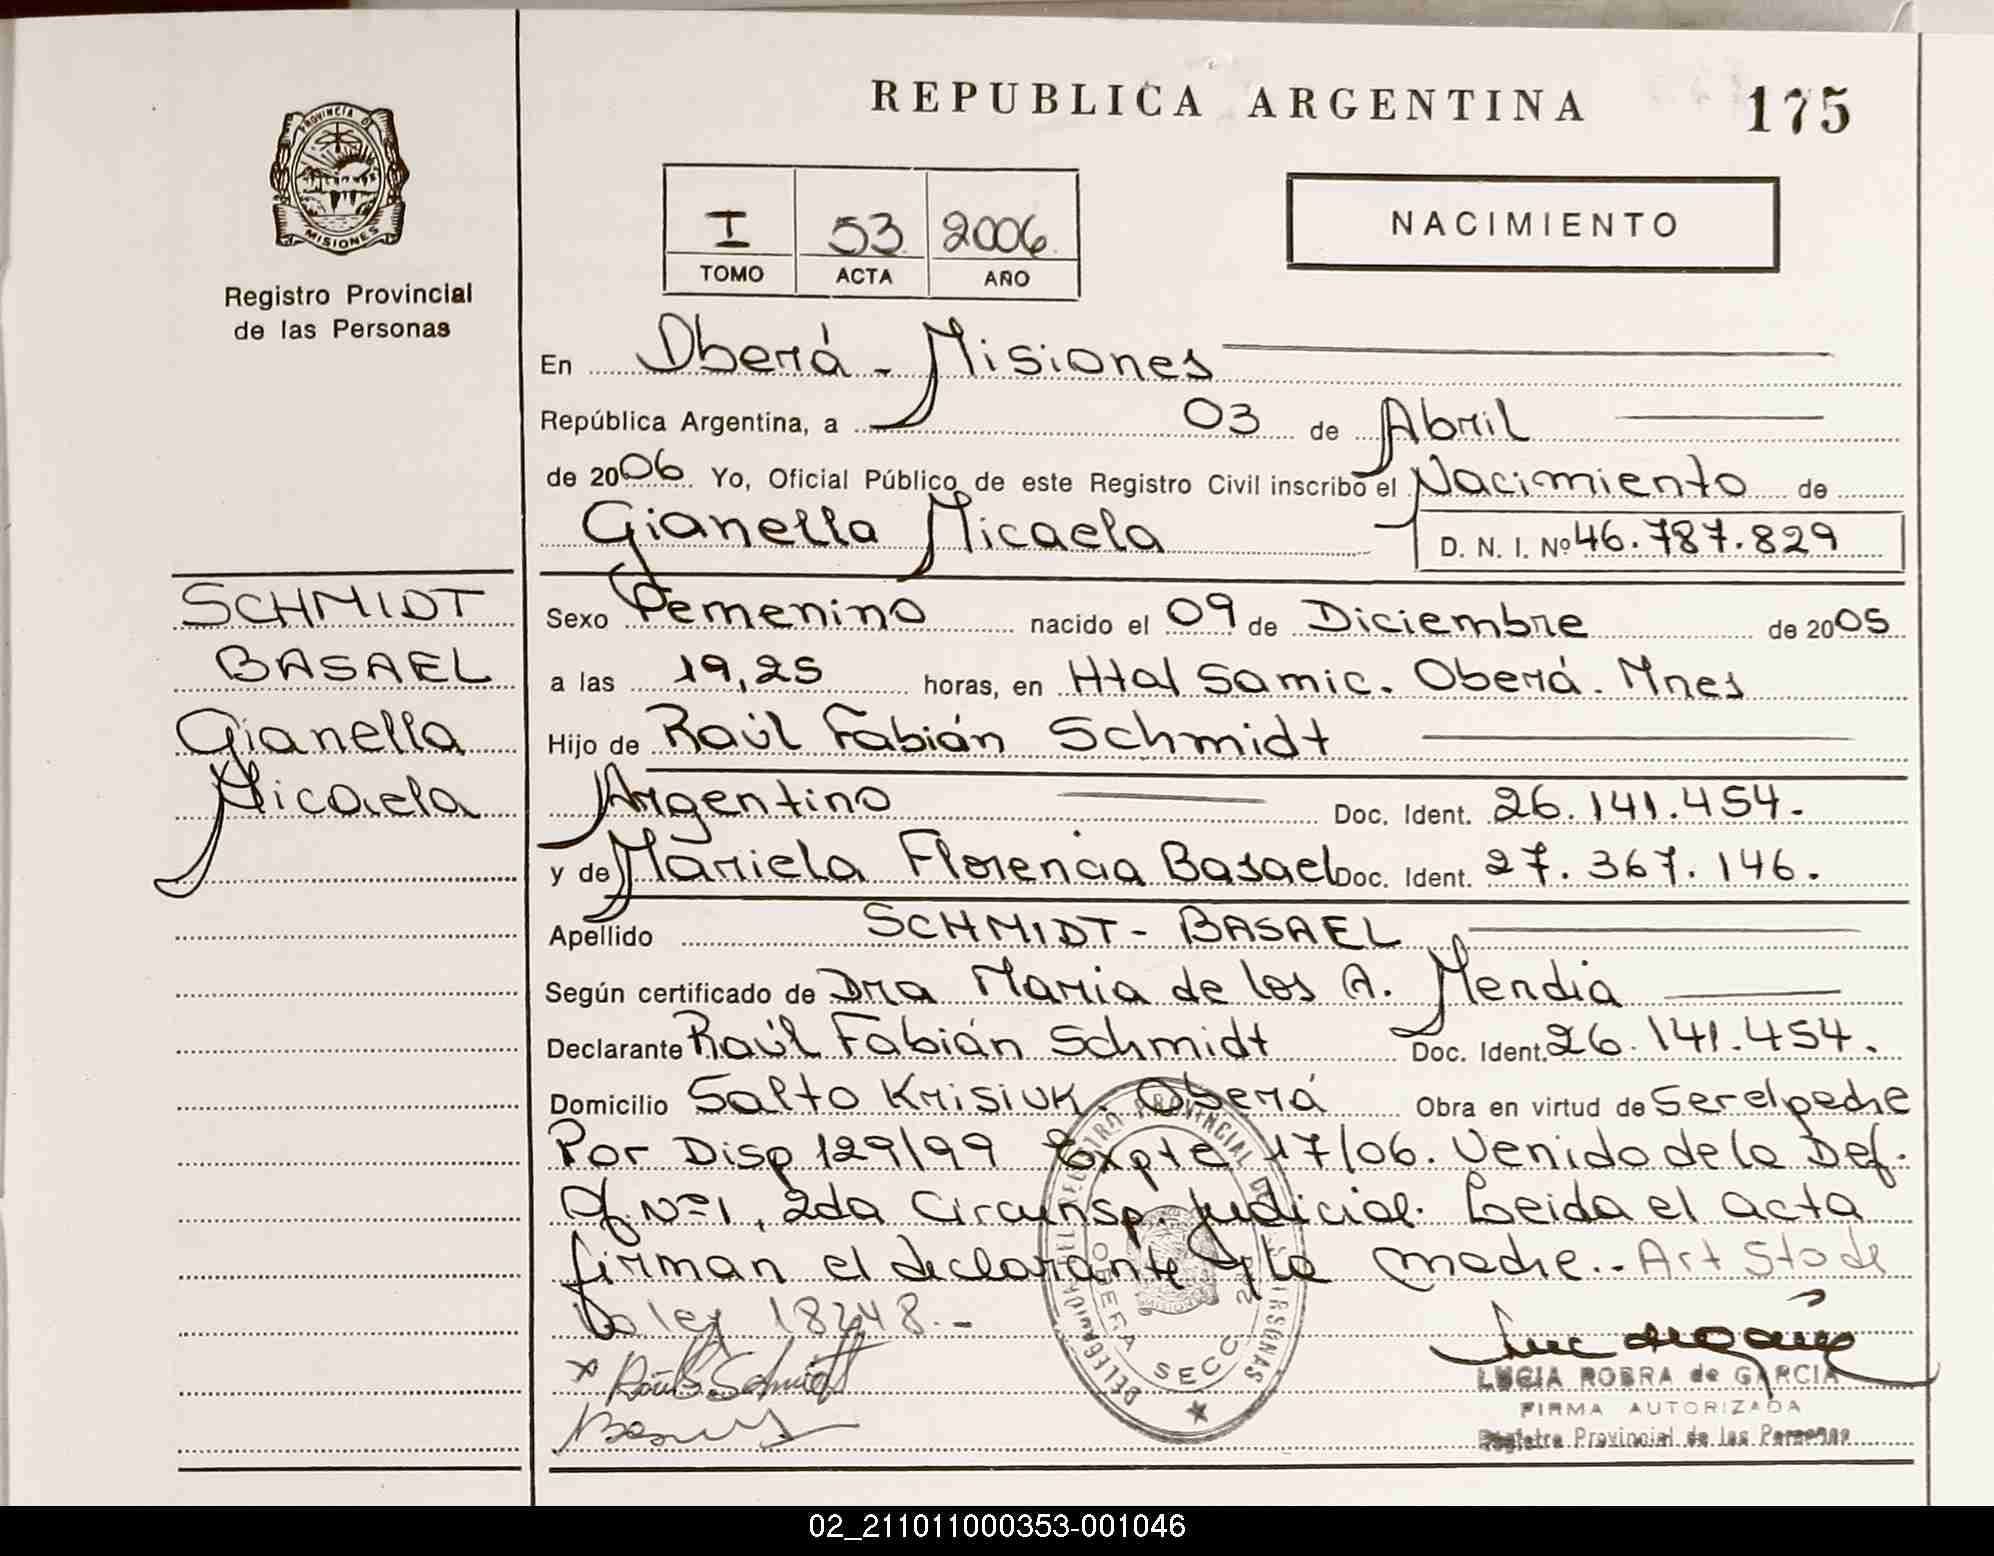 REPUBLICA ARGENTINA
175
PROVINCIA DE
MISIONES
Registro Provincial
de las Personas
I 53 2006
TOMO ACTA AÑO
NACIMIENTO
En Oberá - Misiones
República Argentina, a 03 de Abril
de 2006 Yo, Oficial Público de este Registro Civil inscribo el Nacimiento de
Gianella Micaela D. N. I. Nº 46.787.829
SCHMIDT
BASAEL
Gianella
Micaela
Sexo Femenino nacido el 09 de Diciembre de 2005
a las 19,25 horas, en Htal Samic. Oberá. Mnes
Hijo de Raúl Fabián Schmidt
Argentino Doc. Ident. 26.141.454.
y de Mariela Florencia Basael Doc. Ident. 27.367.146.
Apellido SCHMIDT - BASAEL
Según certificado de Dra Maria de los A. Mendia
Declarante Raúl Fabián Schmidt Doc. Ident. 26.141.454.
Domicilio Salto Krisiuk. Oberá Obra en virtud de Ser el padre
Por Disp 129/99 Expte 17/06. Venido de la Def.
Of. Nº 1, 2da Circunsp. Judicial. Leida el acta
firman el declarante y la madre.. - Art 5to de
la ley 18248. -
x Raúl Schmidt
DELEGACION DEL REGISTRO PROVINCIAL DE LAS PERSONAS
OBERA SECC. 2
LUCIA ROBRA de GARCIA
FIRMA AUTORIZADA
Registro Provincial de las Personas
02_211011000353-001046